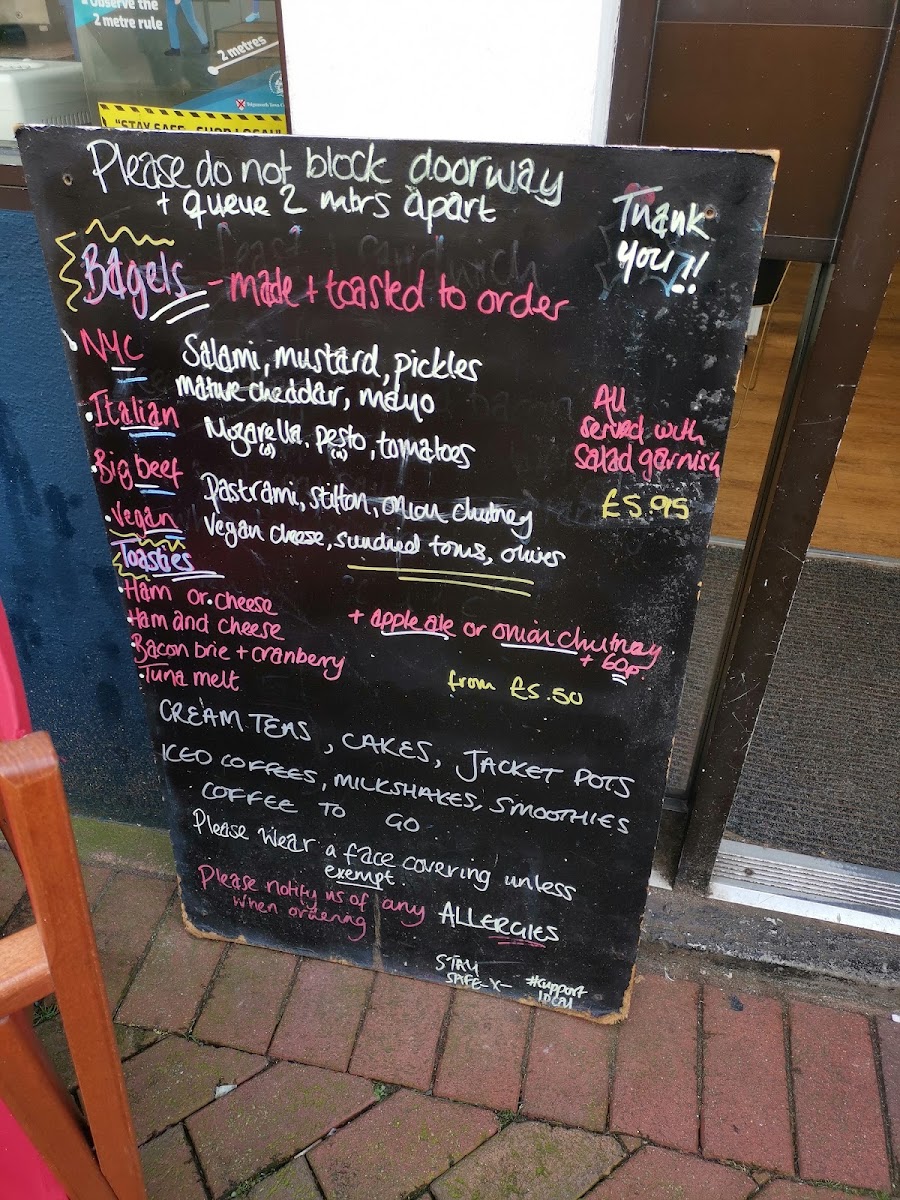 Observe the
2 metre rule
2 metres
"STAY SAFE - SHOP LOCAL"
Please do not block doorway
+ queue 2 mtrs apart
Thank
you!!
Bagels - made + toasted to order
NYC Salami, mustard, pickles
mature cheddar, mayo
Italian Mozarella, pesto, tomatoes
(d) (n)
Big beef Pastrami, stilton, onion chutney
Vegan Vegan cheese, sundried toms, olives
All
served with
salad garnish
£5.95
Toasties
Ham or cheese
Ham and cheese
Bacon brie + cranberry
Tuna melt
+ apple ale or onion chutney
+ 60p
from £5.50
CREAM TEAS, CAKES, JACKET POTS
ICED COFFEES, MILKSHAKES, SMOOTHIES
COFFEE TO GO
Please wear a face covering unless
exempt.
Please notify us of any ALLERGIES
when ordering
STAY
SAFE -X-
#support
local